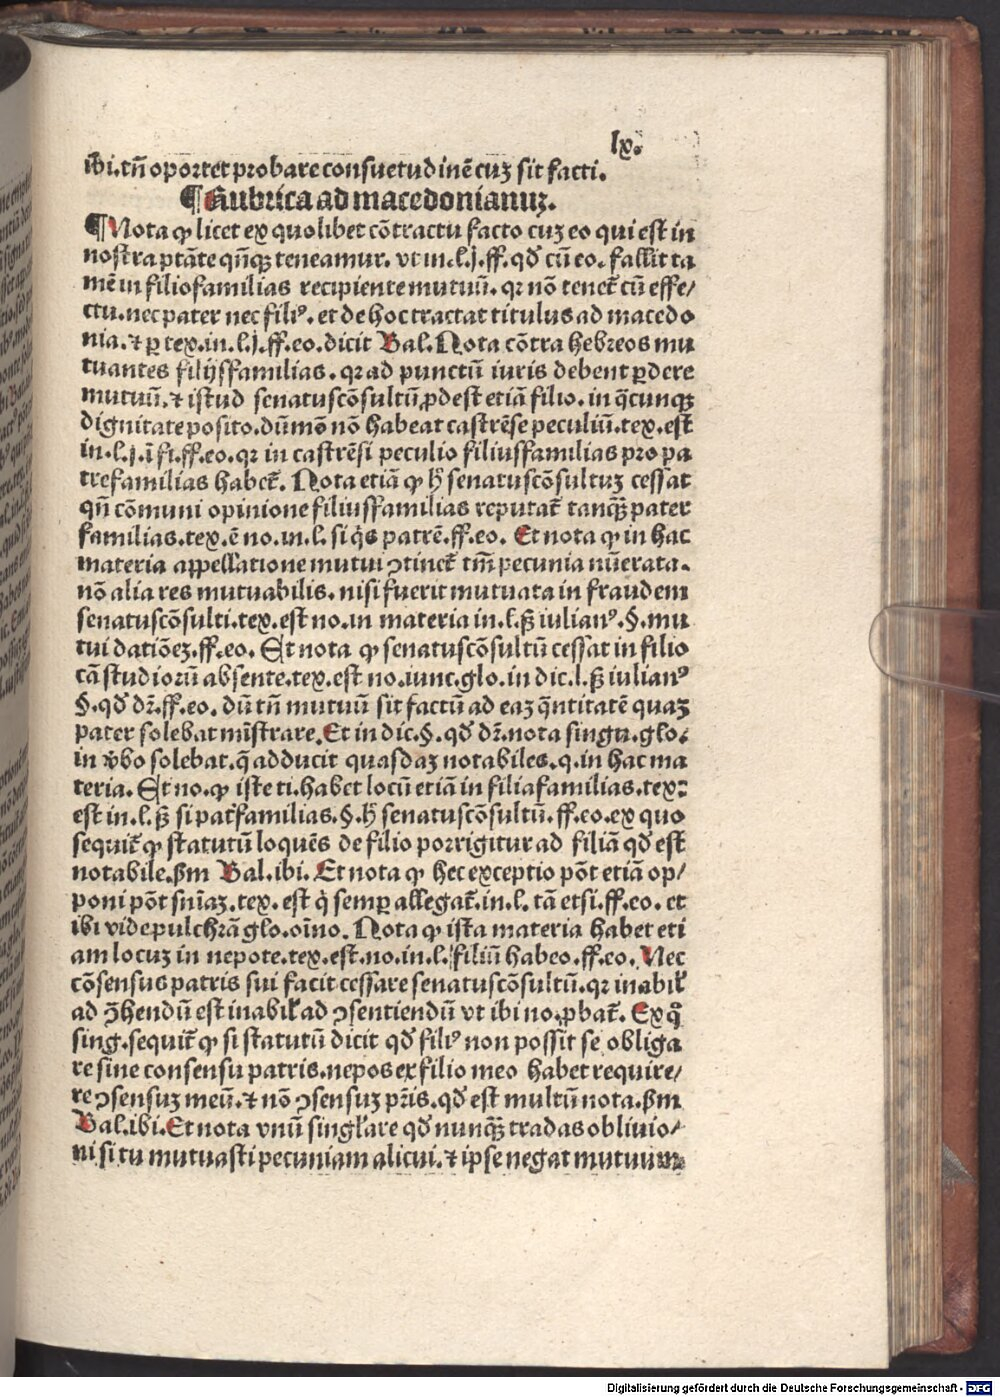 lx.
ibi.tñ oportet probare consuetudinē cuʒ sit facti.
¶Rubrica ad macedonianuʒ.
¶Nota ꝙ licet ex quolibet cōtractu facto cuʒ eo qui est in
nostra ptāte qñqʒ teneamur. vt in.l.j.ff.qđ cū eo. fallit ta
mē in filiofamilias recipiente mutuū. qꝛ nō tenet̄ cū effe/
ctu.nec pater nec filiꝰ. et de hoc tractat titulus ad macedo
nia.⁊ ꝑ tex.in.l.j.ff.eo.dicit Bal.Nota cōtra hebreos mu
tuantes filijsfamilias.qꝛ ad punctū iuris debent ꝑdere
mutuū.⁊ istud senatuscōsultū ꝓdest etiā filio. in q̄cunqʒ
dignitate posito.dūmō nō habeat castrēse peculiū.tex.est
in.l.j.ī fi.ff.eo.qꝛ in castrēsi peculio filiusfamilias pro pa
trefamilias habet̄. Nota etiā ꝙ h̓ senatuscōsultuʒ cessat
qñ cōmuni opinione filiusfamilias reputat̄ tanqʒ̄ pater
familias.tex.ē no.in.l. si q̇s patrē.ff.eo. Et nota ꝙ in hac
materia appellatione mutui ꝯtinet̄ tm̄ pecunia nūerata.
nō alia res mutuabilis. nisi fuerit mutuata in fraudem
senatuscōsulti.tex.est no.in materia in.l.ʒ̄ iulianꝰ.§.mu
tui datiōeʒ.ff.eo. Et nota ꝙ senatuscōsultū cessat in filio
cā studiorū absente.tex.est no.iunc.glo.in dic.l.ʒ̄ iulianꝰ
§.qđ dꝛ̄.ff.eo. dū tñ mutuū sit factū ad eaʒ q̄ntitatē quaʒ
pater solebat mīstrare.Et in dic.§.qđ dꝛ̄.nota singu.glo.
in v̄bo solebat.q̄ adducit quasdaʒ notabiles.q.in hac ma
teria. Et no.ꝙ iste ti.habet locū etiā in filiafamilias.tex:
est in.l.ʒ̄ si pat̄familias.§.h̓ senatuscōsultū.ff.eo.ex quo
sequit̄ ꝙ statutū loquēs de filio porrigitur ad filiā qđ est
notabile.ẜm Bal.ibi. Et nota ꝙ hec exceptio pōt etiā op/
poni pōt sniāʒ.tex. est q̇ semꝑ allegat̄.in.l. tā etsi.ff.eo. et
ibi vide pulchrā glo.oīno. Nota ꝙ ista materia habet eti
am locuʒ in nepote.tex.est.no.in.l.filiū habeo.ff.eo. Nec
cōsensus patris sui facit cessare senatuscōsultū.qꝛ inabil̓
ad ꝯ̄hendū est inabil̓ ad ꝯsentiendū vt ibi no.ꝓbat̄. Ex q̊
sing.sequit̄ ꝙ si statutū dicit qđ filiꝰ non possit se obliga
re sine consensu patris.nepos ex filio meo habet require/
re ꝯsensuʒ meū.⁊ nō ꝯsensuʒ pr̄is.qđ est multū nota.ẜm
Bal.ibi.Et nota vnū singl̓are qđ nunqʒ̄ tradas obliuio/
ni si tu mutuasti pecuniam alicui.⁊ ipse negat mutuum
Digitalisierung gefördert durch die Deutsche Forschungsgemeinschaft - DFG